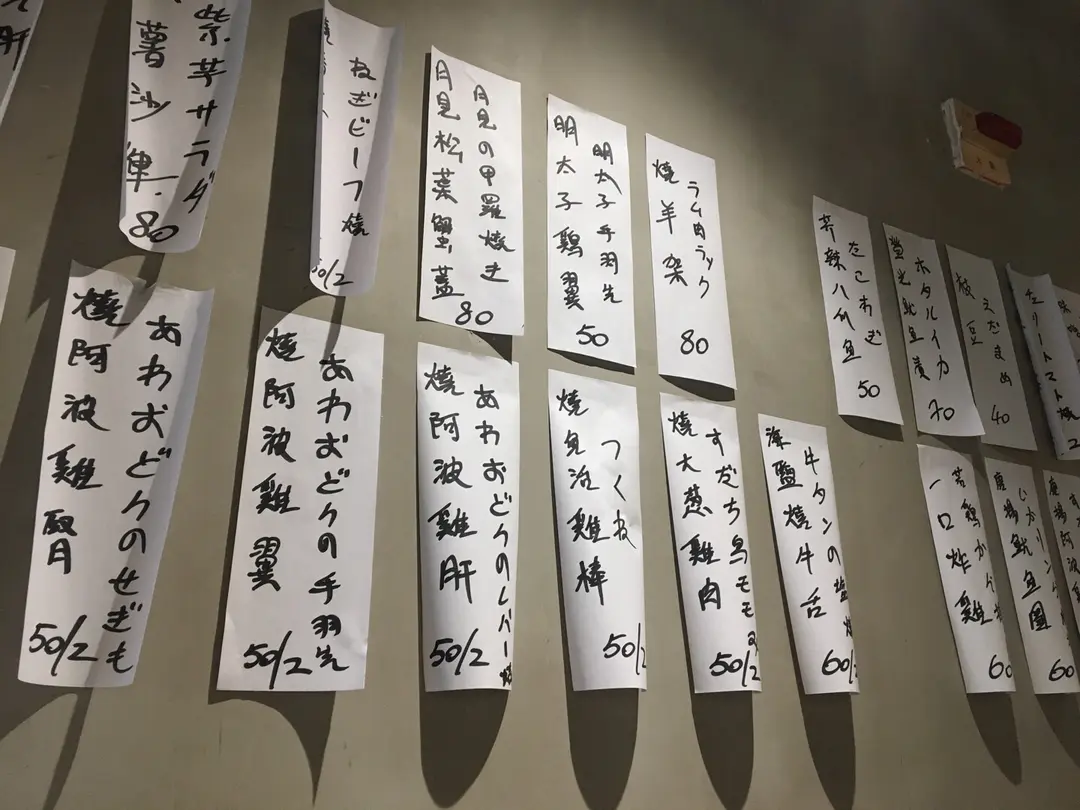 肝
紫芋サラダ
薯沙律.
80
ねぎビーフ焼
50/2
月見の甲羅焼き
月見松葉蟹蓋
80
明太子手羽先
明太子鶏翼
50
ラム肉ラック
燒羊架
80
たこわさ
芥辣八爪魚
50
ホタルイカ
螢光魷魚漬
70
えだまめ
枝豆
40
あわおどりのせぎも
燒阿波雞腎
50/2
あわおどりの手羽先
燒阿波雞翼
50/2
あわおどりのレバー焼
燒阿波雞肝
50/2
つくね
燒免治雞棒
50/2
すだち鳥モモ
燒大葱雞肉
50/2
牛タンの塩焼
海鹽燒牛舌
60/2
若鶏か
一口炸雞
60
いかリング
唐揚魷魚圈
60
唐揚阿波
60